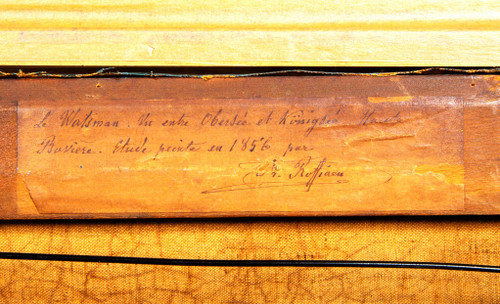 Le Watsman. Vu entre Obersée et Königsée. Haute
Baviere. Etude peinte en 1856 par